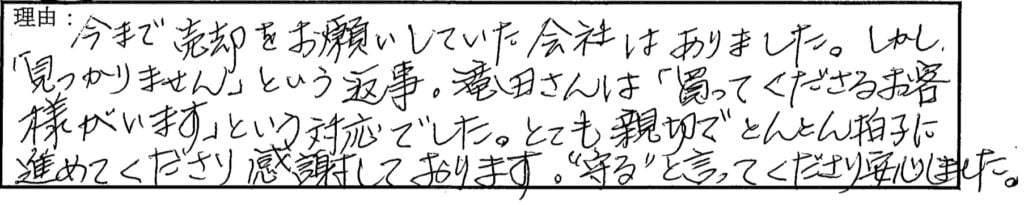 理由：今まで売却をお願いしていた会社はありました。しかし、
「見つかりません」という返事。滝田さんは「買ってくださるお客
様がいます」という対応でした。とても親切でとんとん拍子に
進めてくださり感謝しております。“守る”と言ってくださり安心しました。